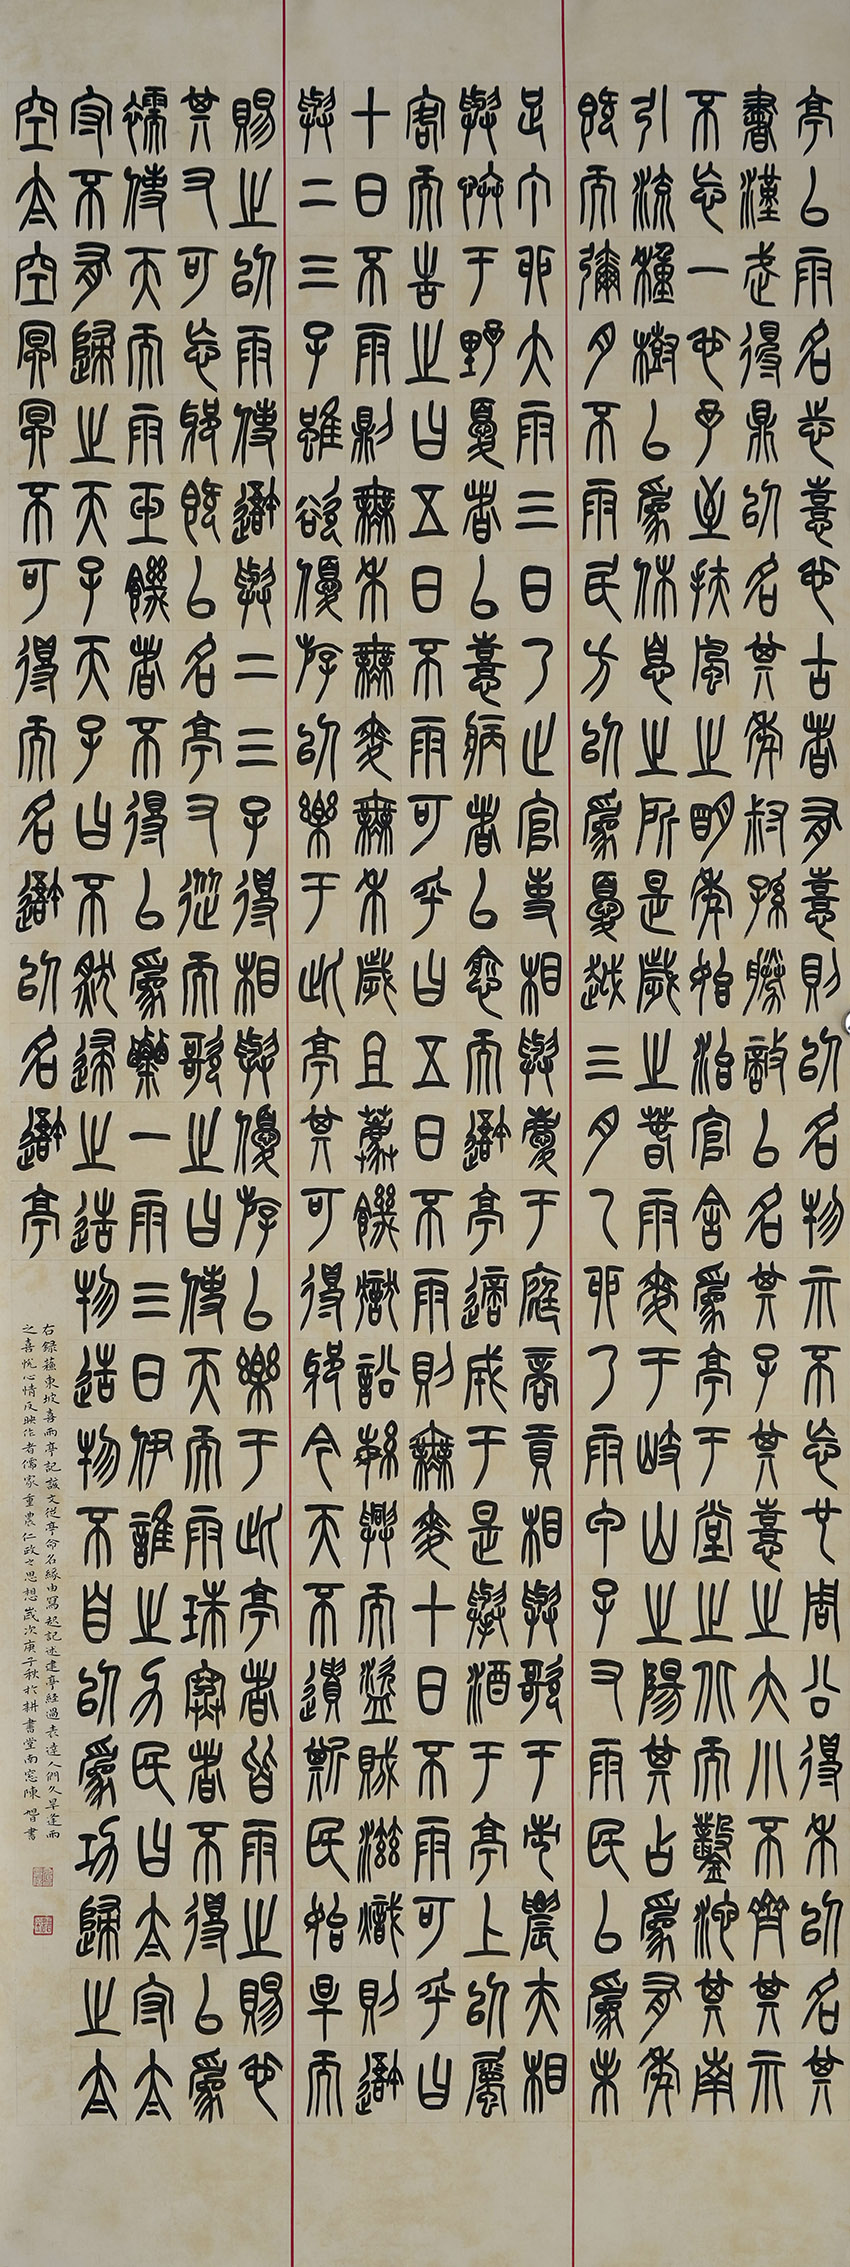 亭以雨名志喜也古者有喜則以名物示不忘也周公得禾以名其
書漢武得鼎以名其年叔孫勝敵以名其子其喜之大小不齊其示
不忘一也予至扶風之明年始治官舍為亭于堂之北而鑿池其南
引流種樹以為休息之所是歲之春雨麥于岐山之陽其占為有年
既而彌月不雨民方以為憂越三月乙卯乃雨甲子又雨民以為未
足丁卯大雨三日乃止官吏相與慶于庭商賈相與歌于市農夫相
與忭于野憂者以喜病者以愈而吾亭適成于是舉酒于亭上以屬
客而告之曰五日不雨可乎曰五日不雨則無麥十日不雨可乎曰
十日不雨則無禾無麥無禾歲且薦饑獄訟繁興而盜賊滋熾則吾
與二三子雖欲優游以樂于此亭其可得邪今天不遺斯民始旱而
賜之以雨使吾與二三子得相與優游以樂于此亭者皆雨之賜也
其又可忘邪既以名亭又從而歌之曰使天而雨珠寒者不得以為
襦使天而雨玉饑者不得以為粟一雨三日伊誰之力民曰太守太
守不有歸之天子天子曰不然歸之造物造物不自以為功歸之太
空太空冥冥不可得而名吾以名吾亭
右録蘇東坡喜雨亭記該文從亭命名緣由寫起記述建亭經過表達人們久旱逢雨
之喜悅心情反映作者儒家重農仁政之思想歲次庚子秋於耕書堂南窓陳書